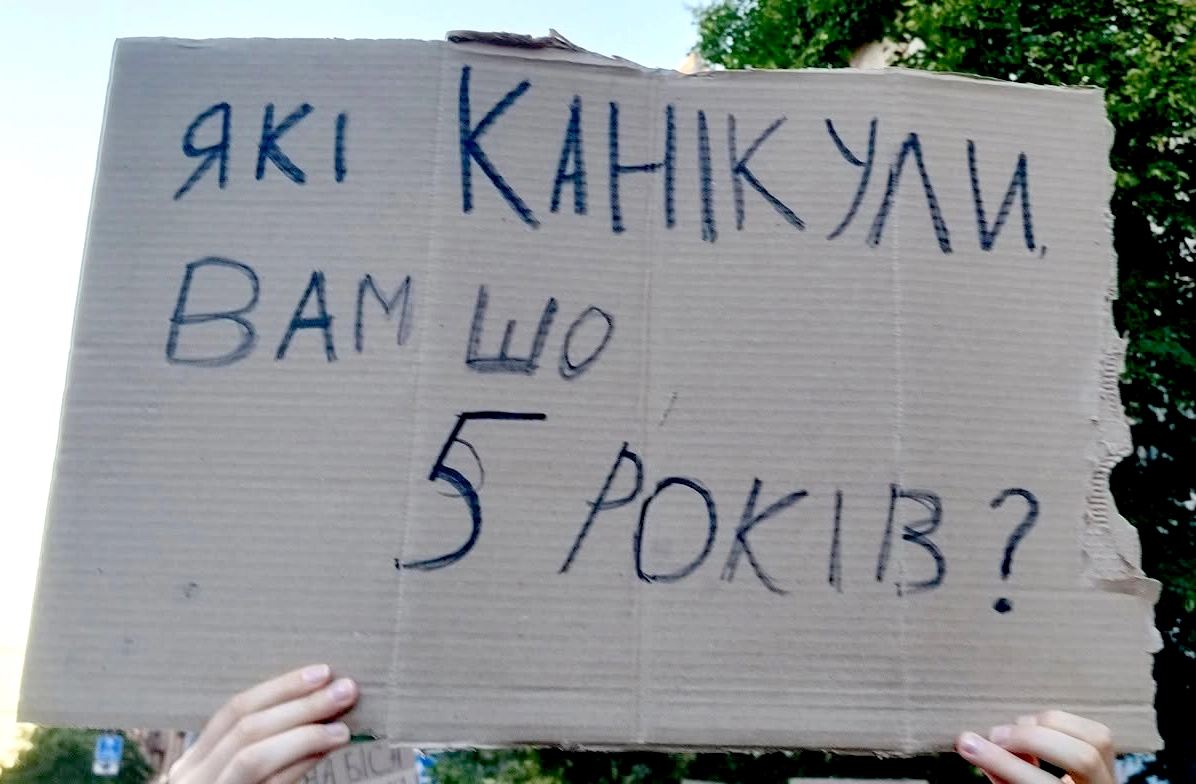 ЯКІ КАНІКУЛИ,
ВАМ ШО
5 РОКІВ?
НА БІСА